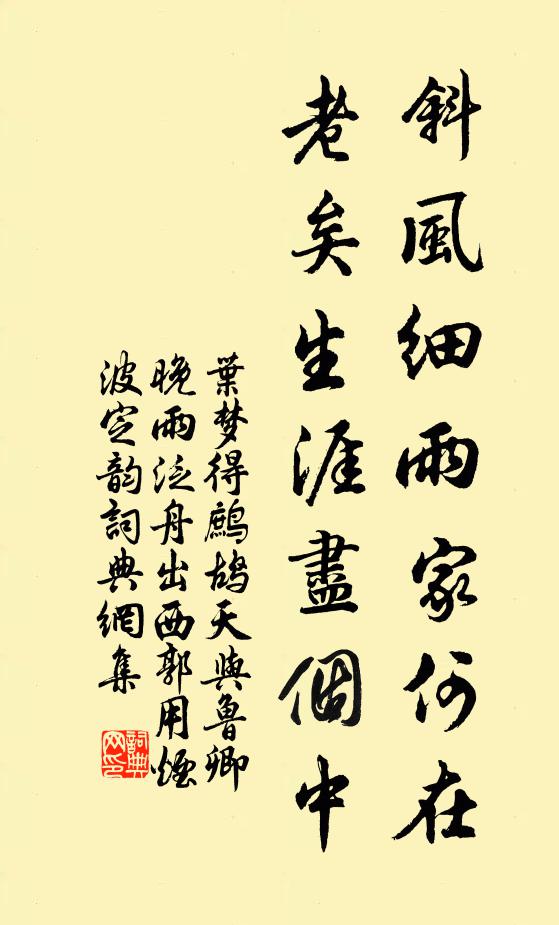 斜風細雨家何在
老矣生涯盡個中
葉梦得鷓鴣天與魯卿
晚雨泛舟出西郭用煙
波定韵詞典網集
詞典网印